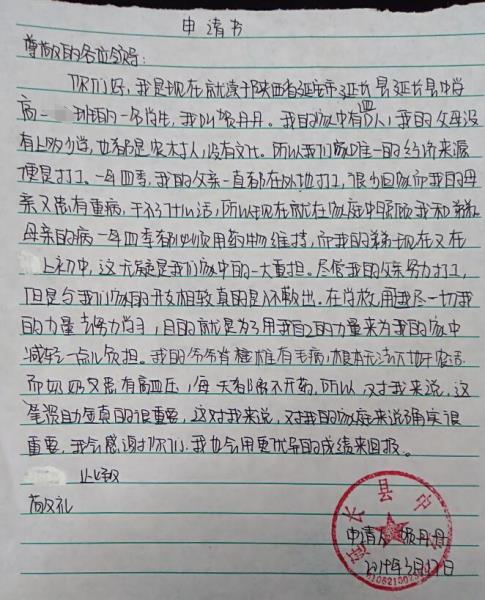 申请书
尊敬的各位领导:
你们好,我是现在就读于陕西省延安市延长县延长县中学
高二 班的一名学生,我叫张丹丹。我的家中有四人,我的父母没
有上过学,也都是农村人,没有文化。所以我们家唯一的经济来源
便是打工、一年四季,我的父亲一直都在外地打工,很少回家而我的母
亲又患有重病,干不了什么活,所以现在就在家庭中照顾我和弟弟,
母亲的病一年四季都必须用药物维持,而我的弟弟现在又在
上初中,这无疑是我们家中的一大重担。尽管我的父亲努力打工,
但是与我们家的开支相较真的是入不敷出。在学校,用我尽一切我
的力量去努力学习,目的就是为了用我自己的力量来为我的家中
减轻一点儿负担。我的爷爷脊椎有毛病,根本无法下地干农活
而奶奶又患有高血压,每天都离不开药,所以,对我来说,这
笔资助金真的很重要,这对我来说,对我的家庭来说确实很
重要,我会感谢你们,我也会用更优异的成绩来回报。
此致
敬礼
申请人 张丹丹
2019年3月17日
延长县中学